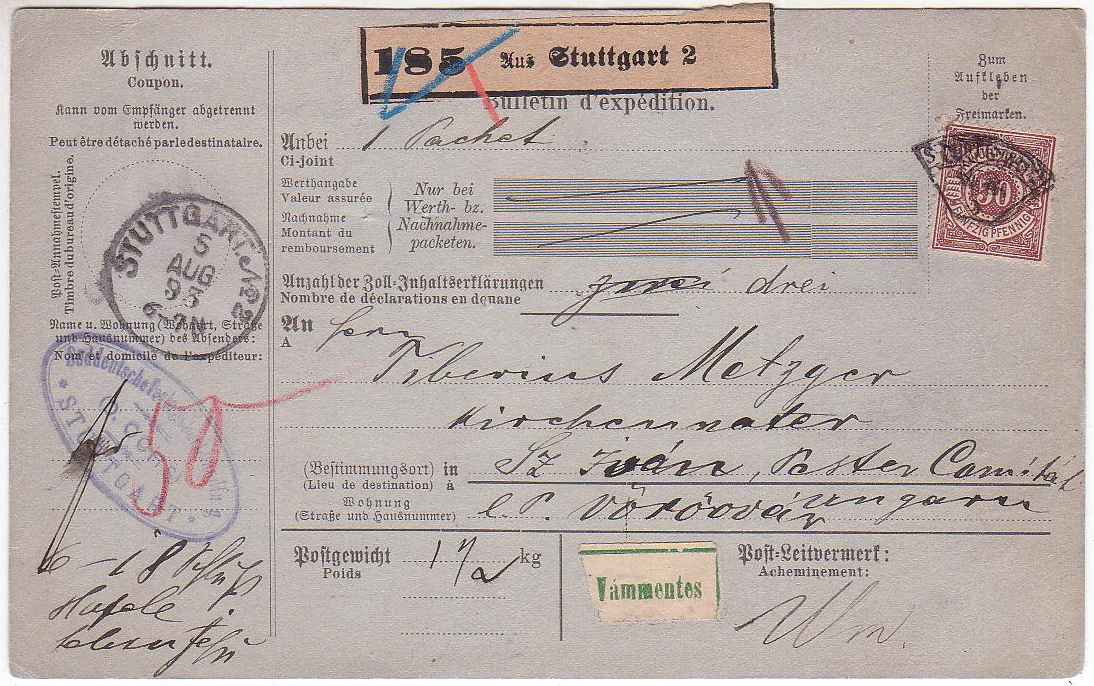 185 Aus Stuttgart 2
Abschnitt.
Coupon.
Kann vom Empfänger abgetrennt
werden.
Peut être détaché par le destinataire.
Post-Annahmestempel.
Timbre du bureau d'origine.
STUTTGART. No 2
5
AUG
93
6-7N
Name u. Wohnung (Wohnort, Straße
und Hausnummer) des Absenders:
Nom et domicile de l'expéditeur:
Süddeutsche
STUTTGART
50
Bulletin d'expédition.
Anbei
Ci-joint
1 Packet
Werthangabe
Valeur assurée
Nachnahme
Montant du
remboursement
Nur bei
Werth- bz.
Nachnahme-
packeten.
Anzahl der Zoll-Inhaltserklärungen
Nombre de déclarations en douane
zwei drei
An
A
Herrn
Tiberius Metzger
Kirchenvater
(Bestimmungsort) in
(Lieu de destination) à
Sz Iván, Pester Comitat
Wohnung
(Straße und Hausnummer)
l. P. Vörösvár Ungarn
Postgewicht
Poids
1 1/2 kg
Vámmentes
Post-Leitvermerk:
Acheminement:
Wn
Zum
Aufkleben
der
Freimarken.
50
FÜNFZIG PFENNIG